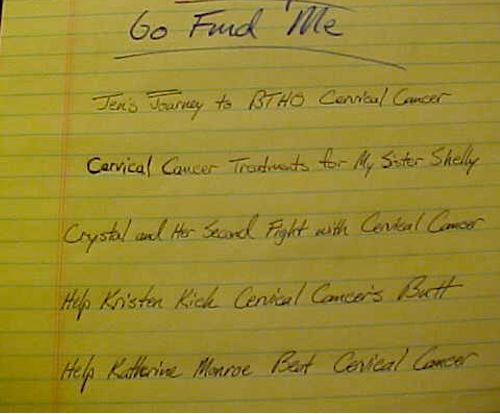 Go Fund Me
Jen's Journey to BTHO Cervical Cancer
Cervical Cancer Treatments for My Sister Shelly
Crystal and Her Second Fight with Cervical Cancer
Help Kristen Kick Cervical Cancer's Butt
Help Katherine Monroe Beat Cervical Cancer